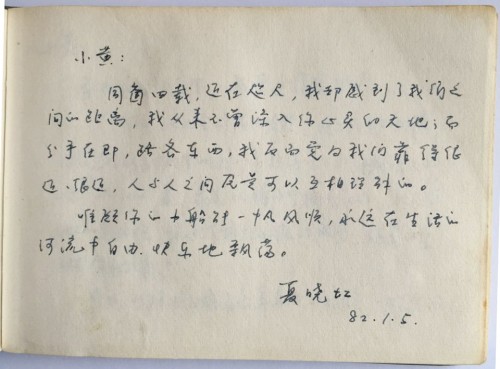 小黄：
同窗四载，近在咫尺，我却感到了我们之
间的距离，我从来不曾深入你心灵的天地；而
分手在即，路各东西，我反而觉得我们靠得很
近、很近，人与人之间还是可以互相理解的。
唯愿你的小船能一帆风顺，永远在生活的
河流中自由、快乐地飘荡。
夏晓虹
82.1.5.